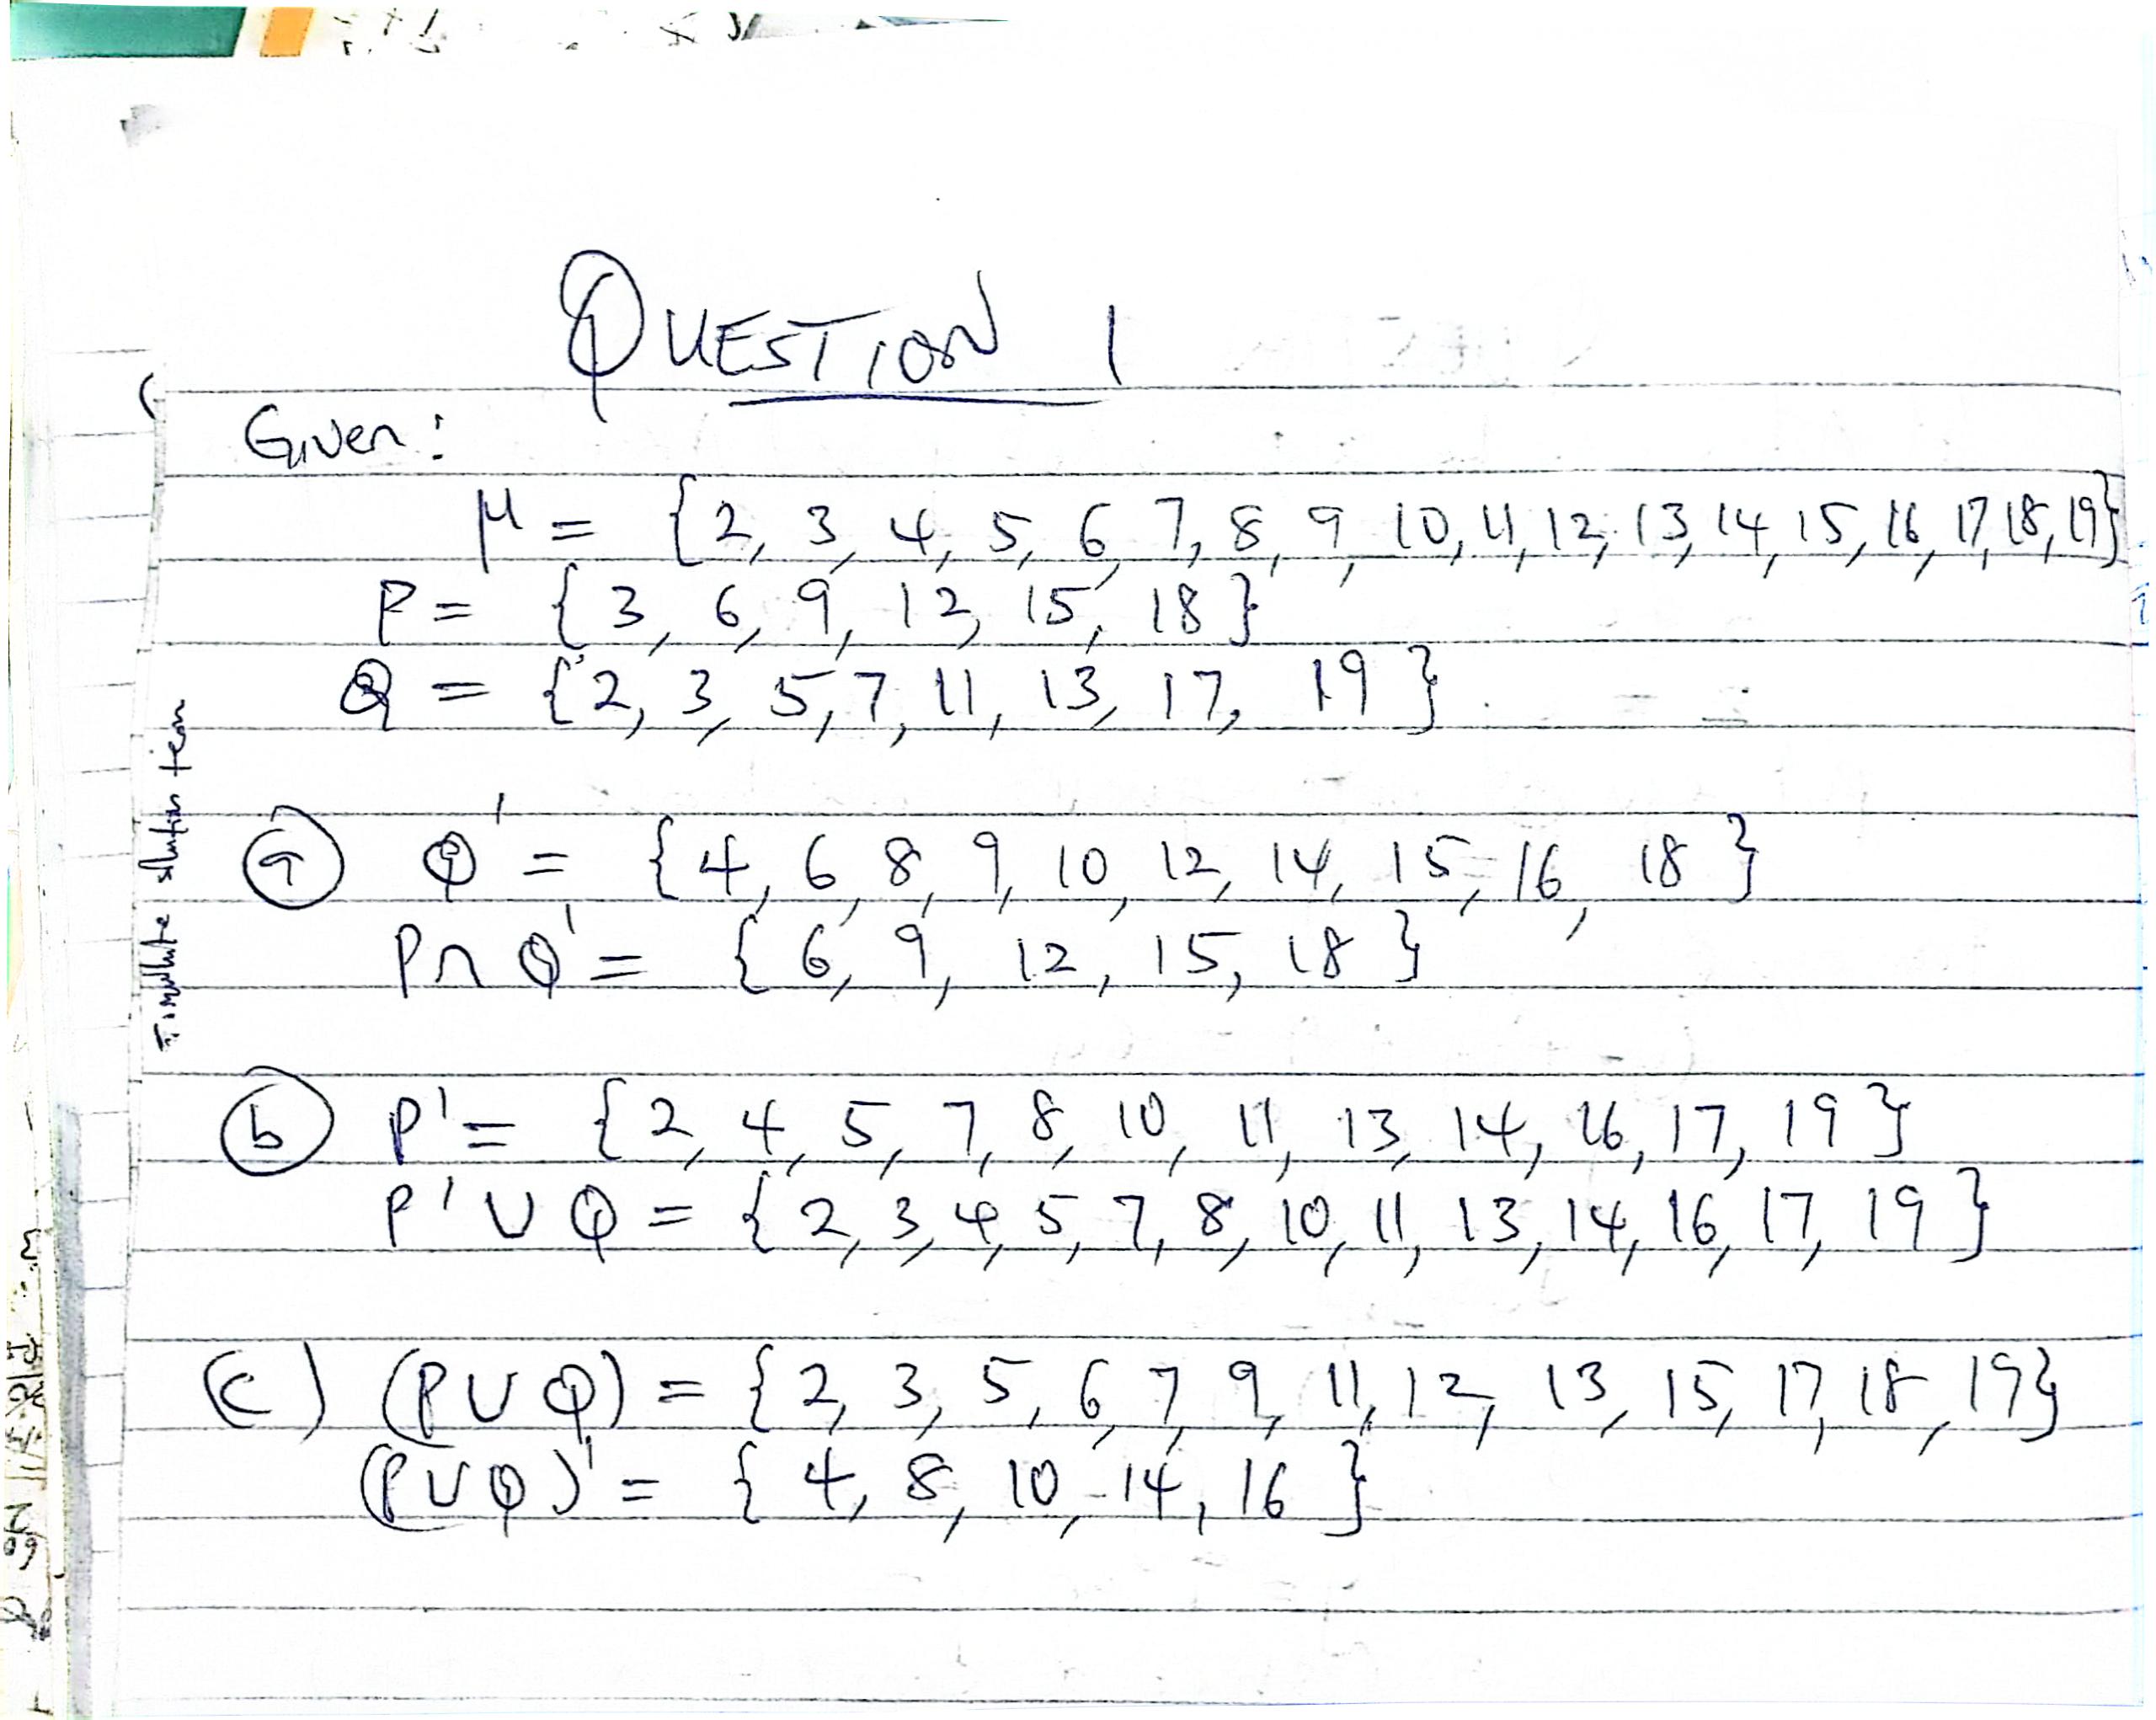 QUESTION 1
Given:
μ = {2, 3, 4, 5, 6, 7, 8, 9, 10, 11, 12, 13, 14, 15, 16, 17, 18, 19}
P = {3, 6, 9, 12, 15, 18}
Q = {2, 3, 5, 7, 11, 13, 17, 19}
(a) Q' = {4, 6, 8, 9, 10, 12, 14, 15, 16, 18}
P∩Q' = {6, 9, 12, 15, 18}
(b) P' = {2, 4, 5, 7, 8, 10, 11, 13, 14, 16, 17, 19}
P'∪Q = {2, 3, 4, 5, 7, 8, 10, 11, 13, 14, 16, 17, 19}
(c) (P∪Q) = {2, 3, 5, 6, 7, 9, 11, 12, 13, 15, 17, 18, 19}
(P∪Q)' = {4, 8, 10, 14, 16}
solution team